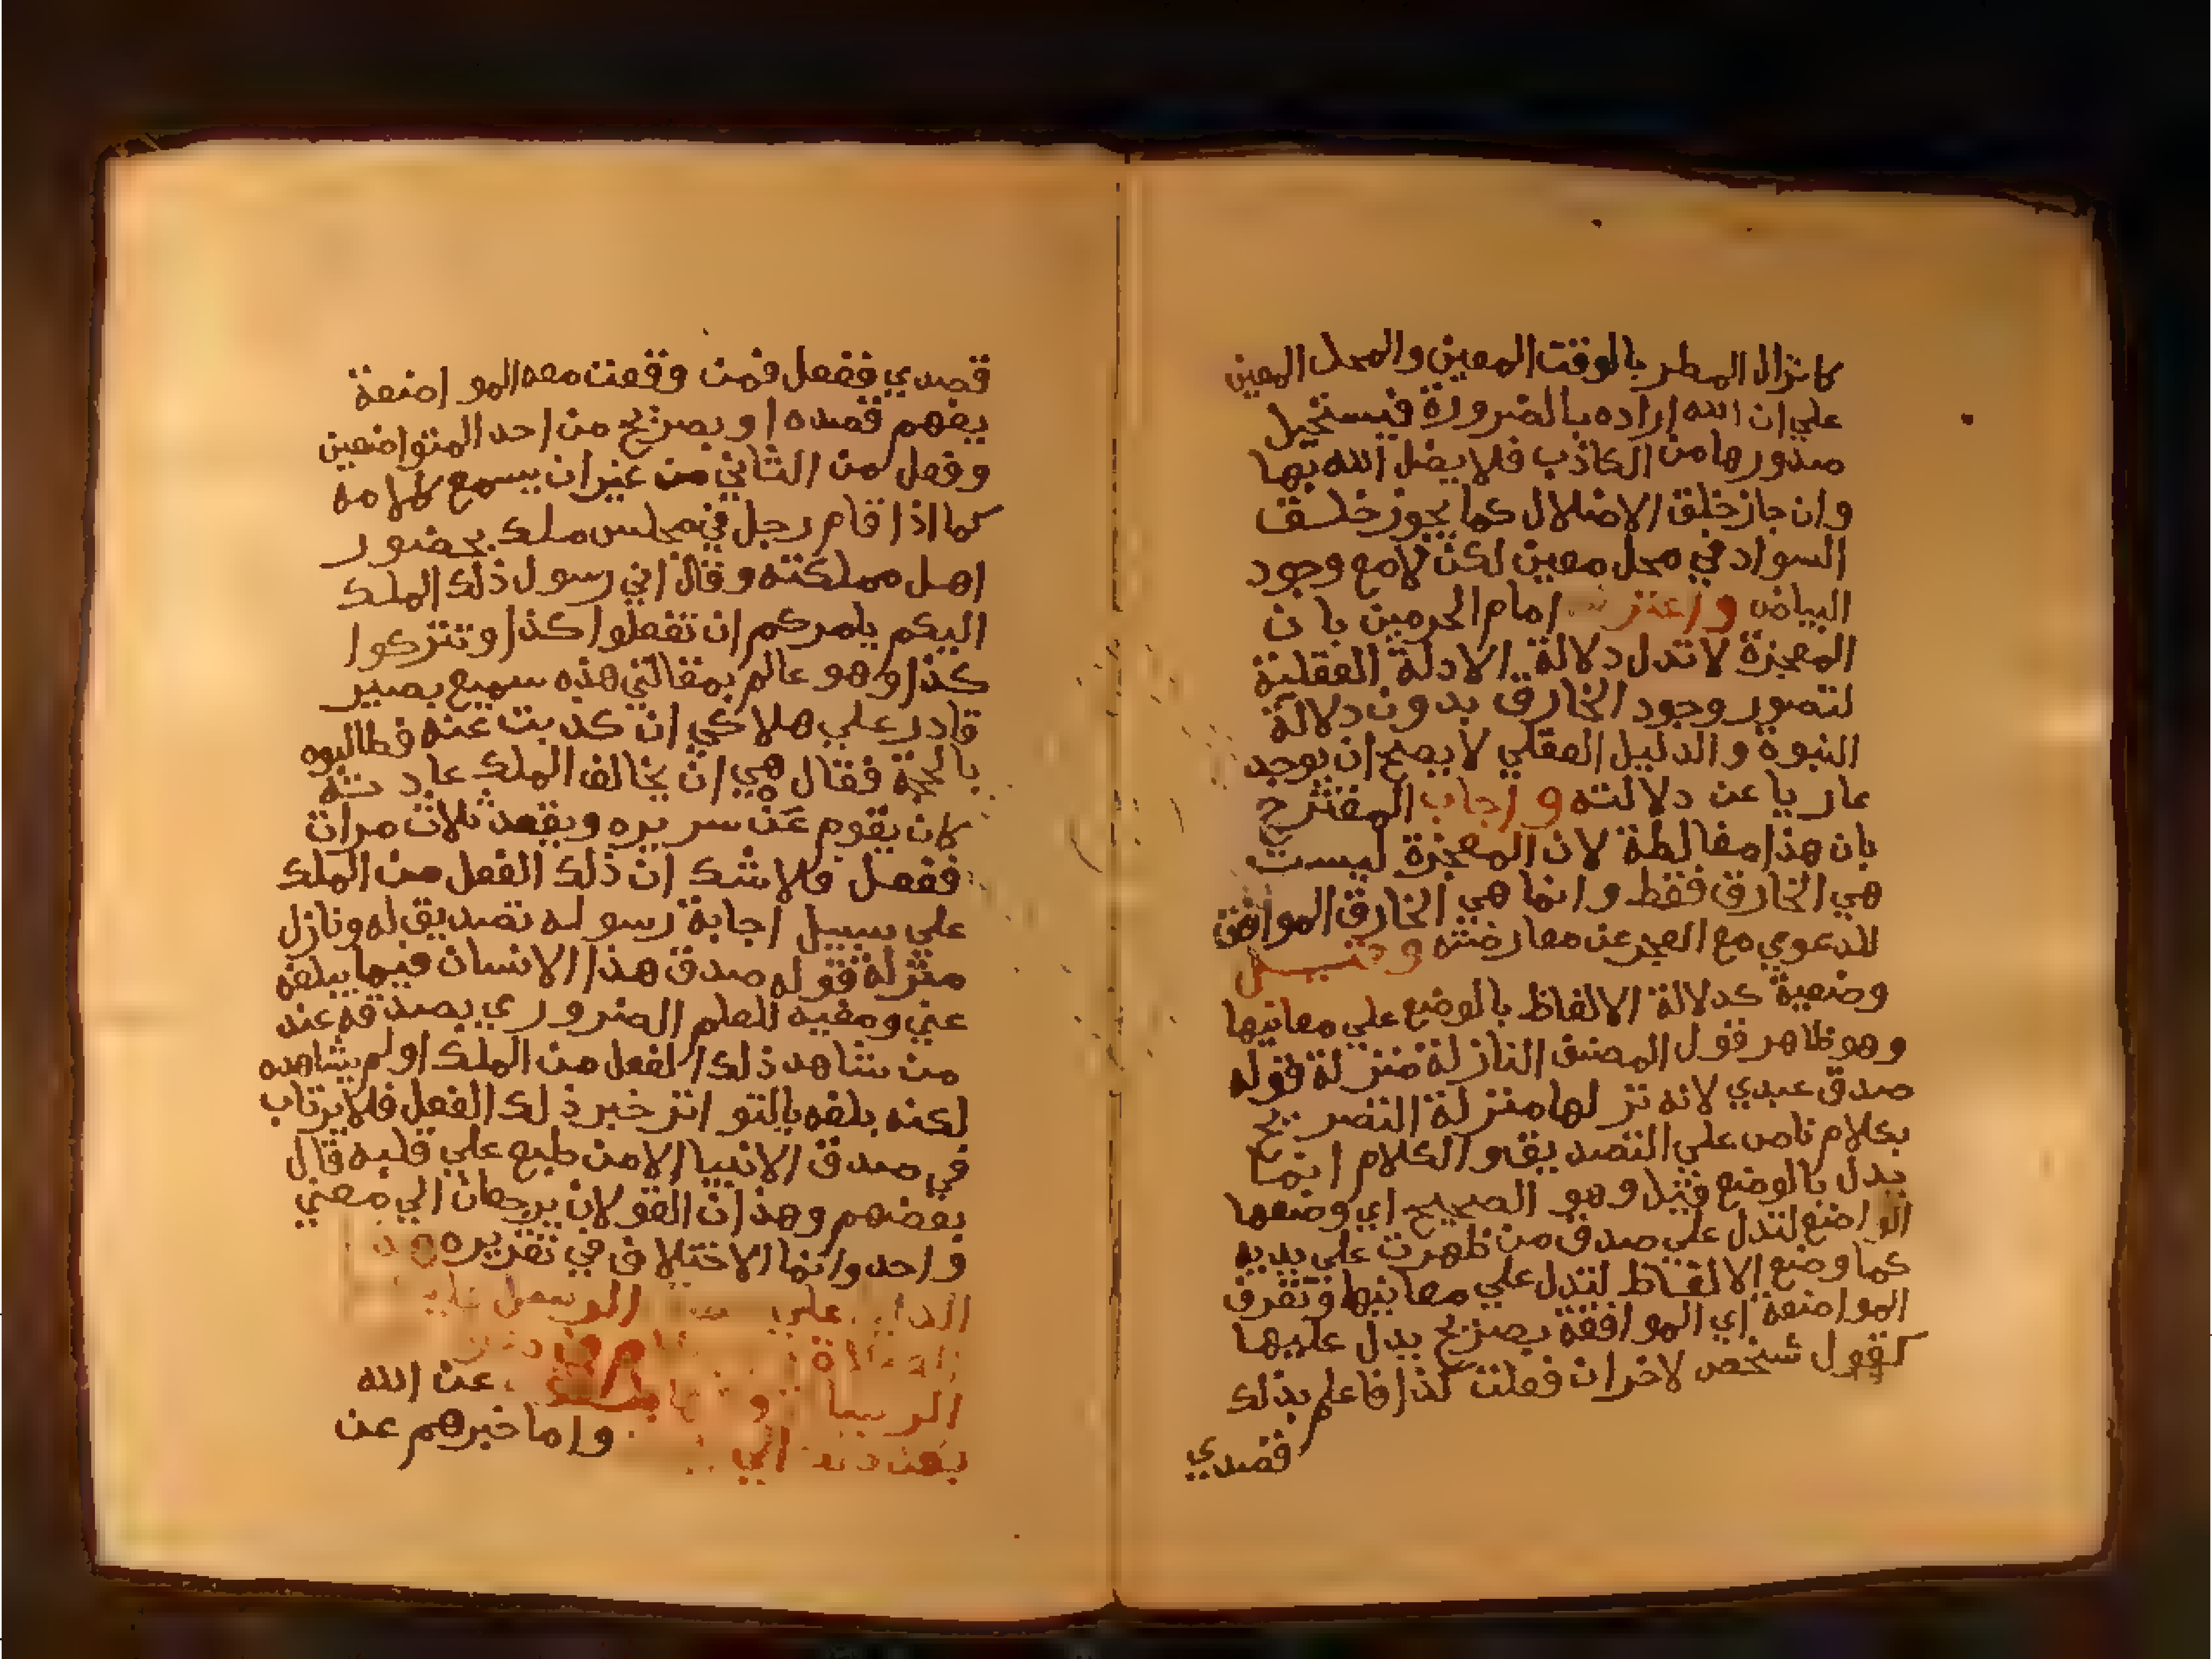 كانزال المطر بالوقت المعين والمحل المعين
علي ان الله اراده بالضرورة فيستحيل
صدورها من الكاذب فلا يضل الله بها
وان جاز خلق الاضلال كما يجوز خلق
السواد في محل معين لكن لا مع وجود
البياض واعترض امام الحرمين بان
المعجزة لا تدل دلالة الادلة العقلية
لتصور وجود الخارق بدون دلالة
النبوة والدليل العقلي لا يصح ان يوجد
عاريا عن دلالته واجاب المقترح
بان هذا مغالطة لان المعجزة ليست
هي الخارق فقط وانما هي الخارق الموافق
للدعوي مع العجز عن معارضته وقيل
وضعية كدلالة الالفاظ بالوضع علي معانيها
وهو ظاهر قول المصنف النازلة منزلة قوله
صدق عبدي لانه نزلها منزلة التصريح
بكلام ناص علي التصديق والكلام انما
يدل بالوضع قيل وهو الصحيح اي وضعها
الواضع لتدل علي صدق من ظهرت علي يديه
كما وضع الالفاظ لتدل علي معانيها وتعرف
المواضعة اي الموافقة بصريح يدل عليها
كقول شخص لاخر ان فعلت كذا فاعلم بذلك
قصدي
قصدي ففعل فمن وقعت معه المواضعة
يفهم قصده او بصريح من احد المتواضعين
وفعل من الثاني من غير ان يسمع كلامه
كما اذا قام رجل في مجلس ملك بحضور
اهل مملكته وقال اني رسول ذلك الملك
اليكم يامركم ان تفعلوا كذا وتتركوا
كذا وهو عالم بمقالتي هذه سميع بصير
قادر علي هلاكي ان كذبت عنه فطالبوه
بالحجة فقال هي ان يخالف الملك عادته
كان يقوم عن سريره ويقعد ثلاث مرات
ففعل فلا شك ان ذلك الفعل من الملك
علي سبيل اجابة رسوله تصديق له ونازل
منزلة قوله صدق هذا الانسان فيما يبلغه
عني ومفيد للعلم الضروري بصدقه عند
من شاهد ذلك الفعل من الملك او لم يشاهده
لكنه بلغه بالتواتر خبر ذلك الفعل فلا يرتاب
في صدق الانبيا الا من طبع علي قلبه قال
بعضهم وهذان القولان يرجعان الي معني
واحد وانما الاختلاف في تقريره
علي الرسل
عن الله
واما خبرهم عن